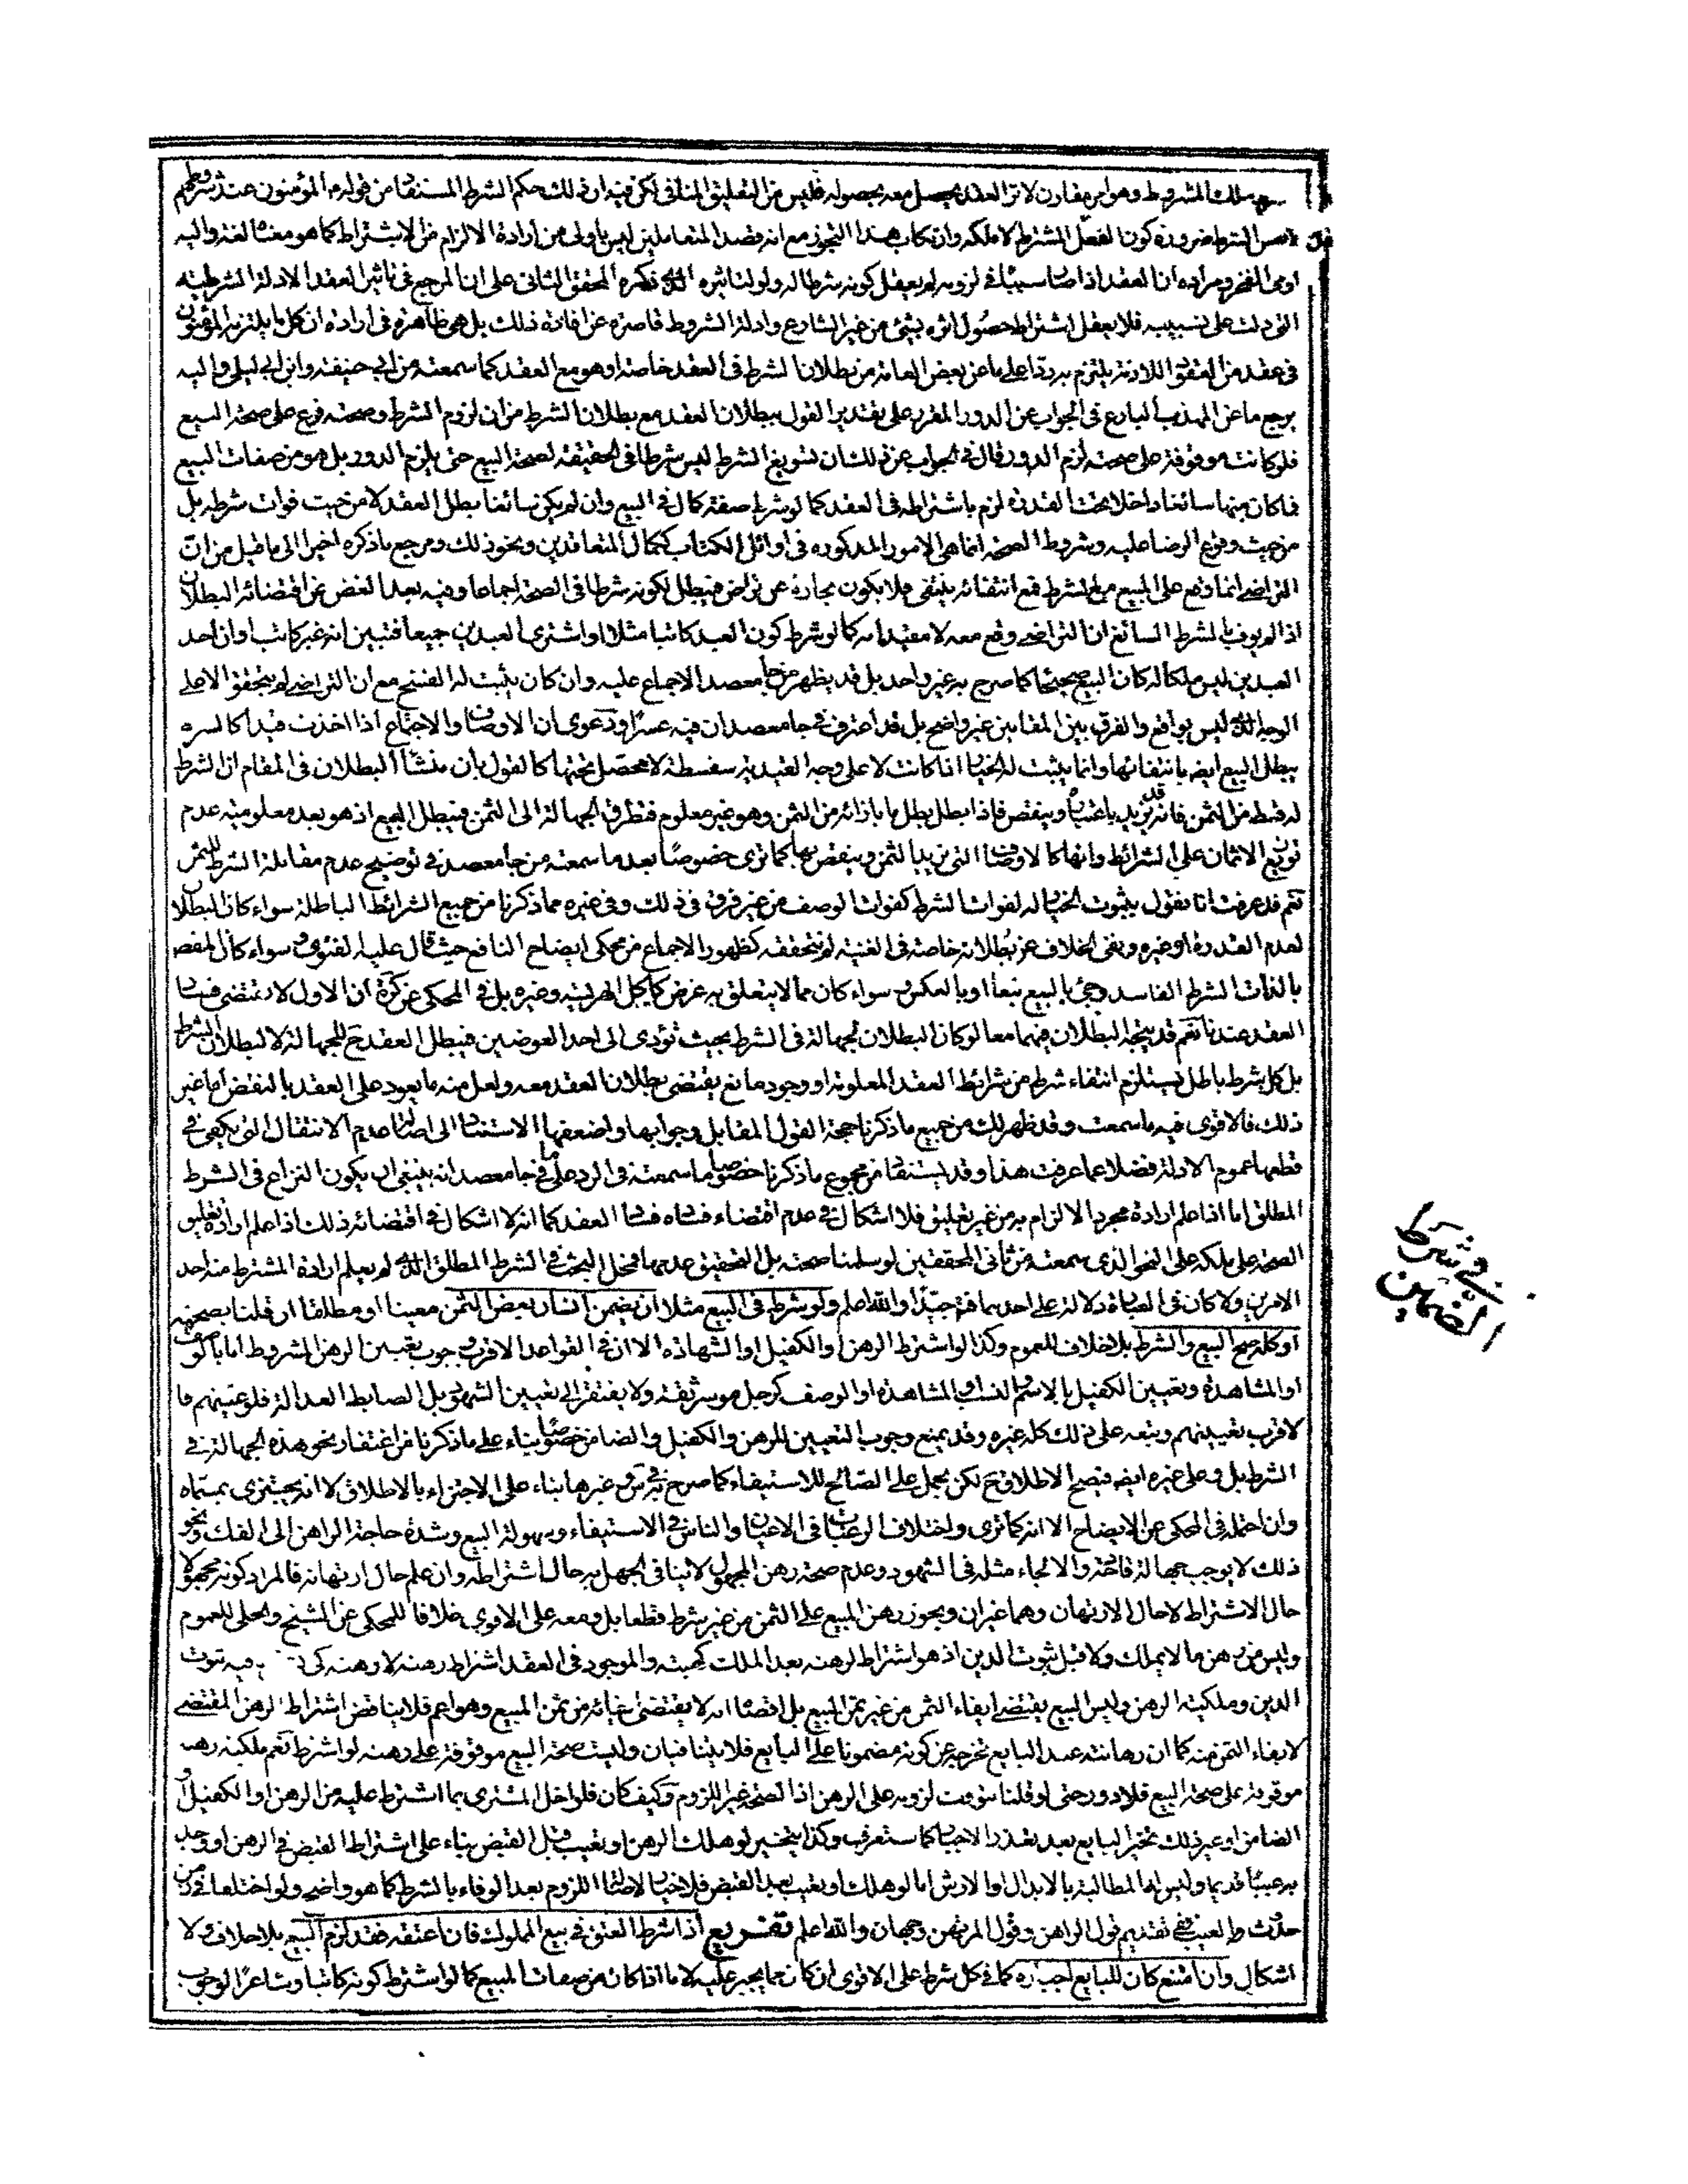 المشروط وهو امر مقارن لان العقد يحصل معه بحصوله فليس من التعليق المنافى لكن فيه ان ذلك حكم الشرط المستفاد من قوله المؤمنون عند شروطهم
الشرط ضرورة كون الفعل المشترط لا ملكه وارتكاب هذا التجوز مع انه قصد المتعاملين ليس باولى من ارادة الالزام من الاشتراط كما هو معناه لغة واليه
اومى الفخر ومراده ان العقد اذا صار سببا فى لزومه لم يعقل كونه شرطا له ولو لتاثيره الذى ذكره المحقق الثانى على ان المرجع فى تاثير العقد الادلة الشرعية
التى دلت على تسبيبه فلا يعقل اشتراط حصول اثره بشئ من غير الشارع وادلة الشروط قاصرة عن افادة ذلك بل هى ظاهرة فى ارادة ان كل ما يلتزم به المؤمنون
فى عقد من العقود اللازمة يلتزم به ردا على ما عن بعض العامة من بطلان الشرط فى العقد خاصة او هو مع العقد كما سمعته من ابى حنيفة وابن ابى ليلى واليه
يرجع ما عن المهذب البارع فى الجواب عن الدور المقرر على تقدير القول ببطلان العقد مع بطلان الشرط من ان لزوم الشرط وصحته فرع على صحة البيع
فلو كانت موقوفة على صحته لزم الدور قال فى الجواب عن ذلك ان تسويغ الشرط ليس شرطا فى الحقيقة لصحة البيع حتى يلزم الدور بل هو من صفات البيع
فما كان منها سائغا داخلا تحت القدرة لزم باشتراطه فى العقد كما لو شرط صفة كمال فى البيع وان لم يكن سائغا بطل العقد لا من حيث فوات شرطه بل
من حيث وقوع الرضا عليه وشروط الصحة انما هى الامور المذكورة فى اوائل الكتاب ككمال المتعاقدين ونحو ذلك ومرجع ما ذكره اخيرا الى ما قيل من ان
التراضى انما وقع على المبيع مع الشرط فمع انتفائه ينتفى فلا يكون تجارة عن تراض فيبطل لكونه شرطا فى الصحة اجماعا وفيه بعد الغض عن اقتضائه البطلان
اذا لم يوف بالشرط السائغ ان التراضى وقع معه لا مقيدا به كما لو شرط كون العبد كاتبا مثلا او اشترى العبدين جميعا فتبين انه غير كاتب او ان احد
العبدين ليس ملكا له كان البيع صحيحا كما صرح به غير واحد بل قد يظهر من جامع صد الاجماع عليه وان كان يثبت له الفسخ مع ان التراضى لم يتحقق الا على
الوجه الذى ليس بواقع والفرق بين المقامين غير واضح بل قد اعترف فى جامع صد ان فيه عسرا ودعوى ان الاوصاف والاجتماع اذا اخذت قيدا كالسره
يبطل البيع ايضا بانتفائها وانما يثبت له الخيار اذا كانت لا على وجه القيدية سفسطة لا محصل تحتها كالقول بان منشأ البطلان فى المقام ان الشرط
له قسط من الثمن فانه قد يزيد باعتباره وينقص فاذا بطل بطل ما بازائه من الثمن وهو غير معلوم فتطرق الجهالة الى الثمن فيبطل البيع اذ هو بعد معلومية عدم
توزيع الاثمان على الشرائط وانها كالاوصاف التى يزيد الثمن وينقص بها كما ترى خصوصا بعد ما سمعته من جامع صد فى توضيح عدم مقابلة الشرط للثمن
نعم قد عرفت انا نقول بثبوت الخيار له لفوات الشرط كفوات الوصف من غير فرق فى ذلك وفى غيره مما ذكرنا من جميع الشرائط الباطلة سواء كان البطلان
لعدم القدرة او غيره ونفى الخلاف عن بطلانه خاصة فى الغنية لم نتحققه كظهور الاجماع من محكى ايضاح النافع حيث قال عليه الفتوى وسواء كان المقصود
بالذات الشرط الفاسد وجئ بالبيع تبعا او بالعكس وسواء كان مما لا يتعلق به غرض كاكل الهريسة وغيره بل فى المحكى عن كرة ان الاول لا يقتضى فساد
العقد عندنا نعم قد يتجه البطلان فيهما معا لو كان البطلان لجهالة فى الشرط بحيث تؤدى الى احد العوضين فيبطل العقد ح للجهالة لا لبطلان الشرط
بل كل شرط باطل يستلزم انتفاء شرط من شرائط العقد المعلومة او وجود مانع يقتضى بطلان العقد معه ولعل منه ما يعود على العقد بالنقض اما غير
ذلك فالاقوى فيه ما سمعت وقد ظهر لك من جميع ما ذكرنا حجة القول المقابل وجوابها واضعفها الاستناد الى اصالة عدم الانتقال التى يكفى فى
قطعها عموم الادلة فضلا عما عرفت هذا وقد يستفاد من مجموع ما ذكرنا خصوصا ما سمعته فى الرد على ما فى جامع صد انه ينبغى ان يكون النزاع فى الشرط
المطلق اما اذا علم ارادة مجرد الالزام به من غير تعليق فلا اشكال فى عدم اقتضاء فساده فساد العقد كما انه لا اشكال فى اقتضائه ذلك اذا علم ارادة تعليق
الصحة على ملكه على النحو الذى سمعته من ثانى المحققين لو سلمنا صحته بل التحقيق عدمها فمحل البحث فى الشرط المطلق الذى لم يعلم ارادة المشترط منه احد
الامرين ولا كان فى العبارة دلالة على احدهما فت جيدا والله اعلم ولو شرط فى البيع مثلا ان يضمن انسان بعض الثمن معينا او مطلقا ان قلنا بصحته
او كله صح البيع والشرط بلا خلاف للعموم وكذا لو اشترط الرهن او الكفيل او الشهادة الا ان فى القواعد الاقرب وجوب تعيين الرهن المشروط اما بالوصف
او المشاهدة وتعيين الكفيل بالاسم والنسب او المشاهدة او الوصف كرجل موسر ثقة ولا يفتقر الى تعيين الشهود بل الضابط العدالة فلو عينهم فا
لاقرب تعيينهم وتبعه على ذلك كله غيره وقد يمنع وجوب التعيين للرهن والكفيل والضامن خصوصا بناء على ما ذكرنا من اغتفار نحو هذه الجهالة فى
الشرط بل وعلى غيره ايضا فيصح الاطلاق ح لكن يحمل على الصالح للاستيفاء كما صرح فى س وغيرها بناء على الاجتزاء بالاطلاق لا انه يجتزى بمسماه
وان احتمله فى المحكى عن الايضاح الا انه كما ترى واختلاف الرغبات فى الاعيان والناس فى الاستيفاء وسهولة البيع وشدة حاجة الراهن الى الفك ونحو
ذلك لا يوجب جهالة فادحة والا لجاء مثله فى الشهود وعدم صحة رهن المجهول لا ينافى الجهل به حال اشتراطه وان علم حال ارتهانه فالمراد كونه مجهولا
حال الاشتراط لا حال الارتهان وهما غيران ويجوز رهن المبيع على الثمن من غير شرط قطعا بل ومعه على الاقوى خلافا للمحكى عن الشيخ والحلى للعموم
وليس من رهن ما لا يملك ولا قبل ثبوت الدين اذ هو اشتراط لرهنه بعد الملك كهبته والموجود فى العقد اشتراط رهنه لا رهنه كى فيه ثبوت
الدين وملكية الرهن وليس البيع يقتضى ايفاء الثمن من غير ثمن المبيع بل اقصاه انه لا يقتضى ايفائه من ثمن المبيع وهو اعم فلا ينافض اشتراط الرهن المقتضى
لايفاء الثمن منه كما ان رهانته عند البايع تخرجه عن كونه مضمونا على البايع فلا يتنافيان وليست صحة البيع موقوفة على رهنه لو اشترط نعم ملكية رهنه
موقوفة على صحة البيع فلا دور حتى لو قلنا بتوقف لزومه على الرهن اذ الصحة غير اللزوم وكيف كان فلو اخل المشترى بما اشترط عليه من الرهن او الكفيل او
الضامن او غير ذلك تخير البايع بعد تعذر الاجبار كما ستعرف وكذا يتخير لو هلك الرهن او تعيب قبل القبض بناء على اشتراط القبض فى الرهن او وجد
به عيبا قديما وليس له المطالبة بالابدال والارش اما لو هلك او تعيب بعد القبض فلا خيار لاصالة اللزوم بعد الوفاء بالشرط كما هو واضح ولو اختلفا فى زمن
حدوث العيب ففى تقديم قول الراهن وقول المرتهن وجهان والله اعلم تفريع اذا شرط العتق فى بيع المملوك فان اعتقه فقد لزم البيع بلا خلاف ولا
اشكال وان امتنع كان للبايع اجباره كما فى كل شرط على الاقوى ان كان مما يجبر عليه لا ما اذا كان من صفات المبيع كما لو اشترط كونه كاتبا وشاعرا لوجوب
فى شرط
الضمين